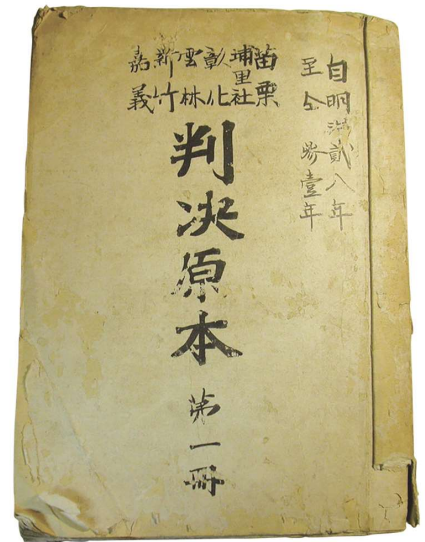 自明治貳八年
至仝參壹年
苗栗
埔里社
彰化
雲林
新竹
嘉義
判决原本 第一冊